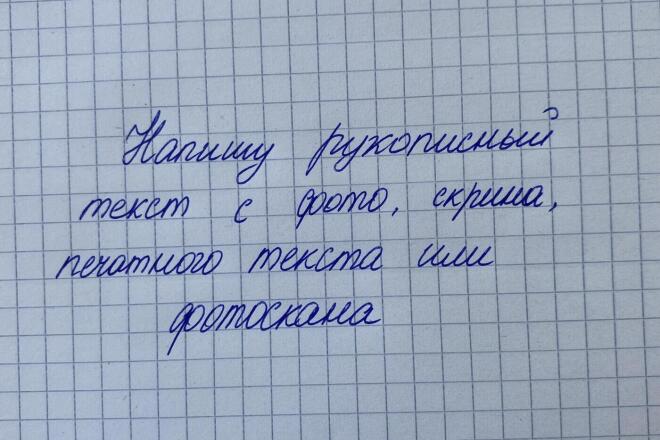 Напишу рукописный
текст с фото, скрина,
печатного текста или
фотоскана